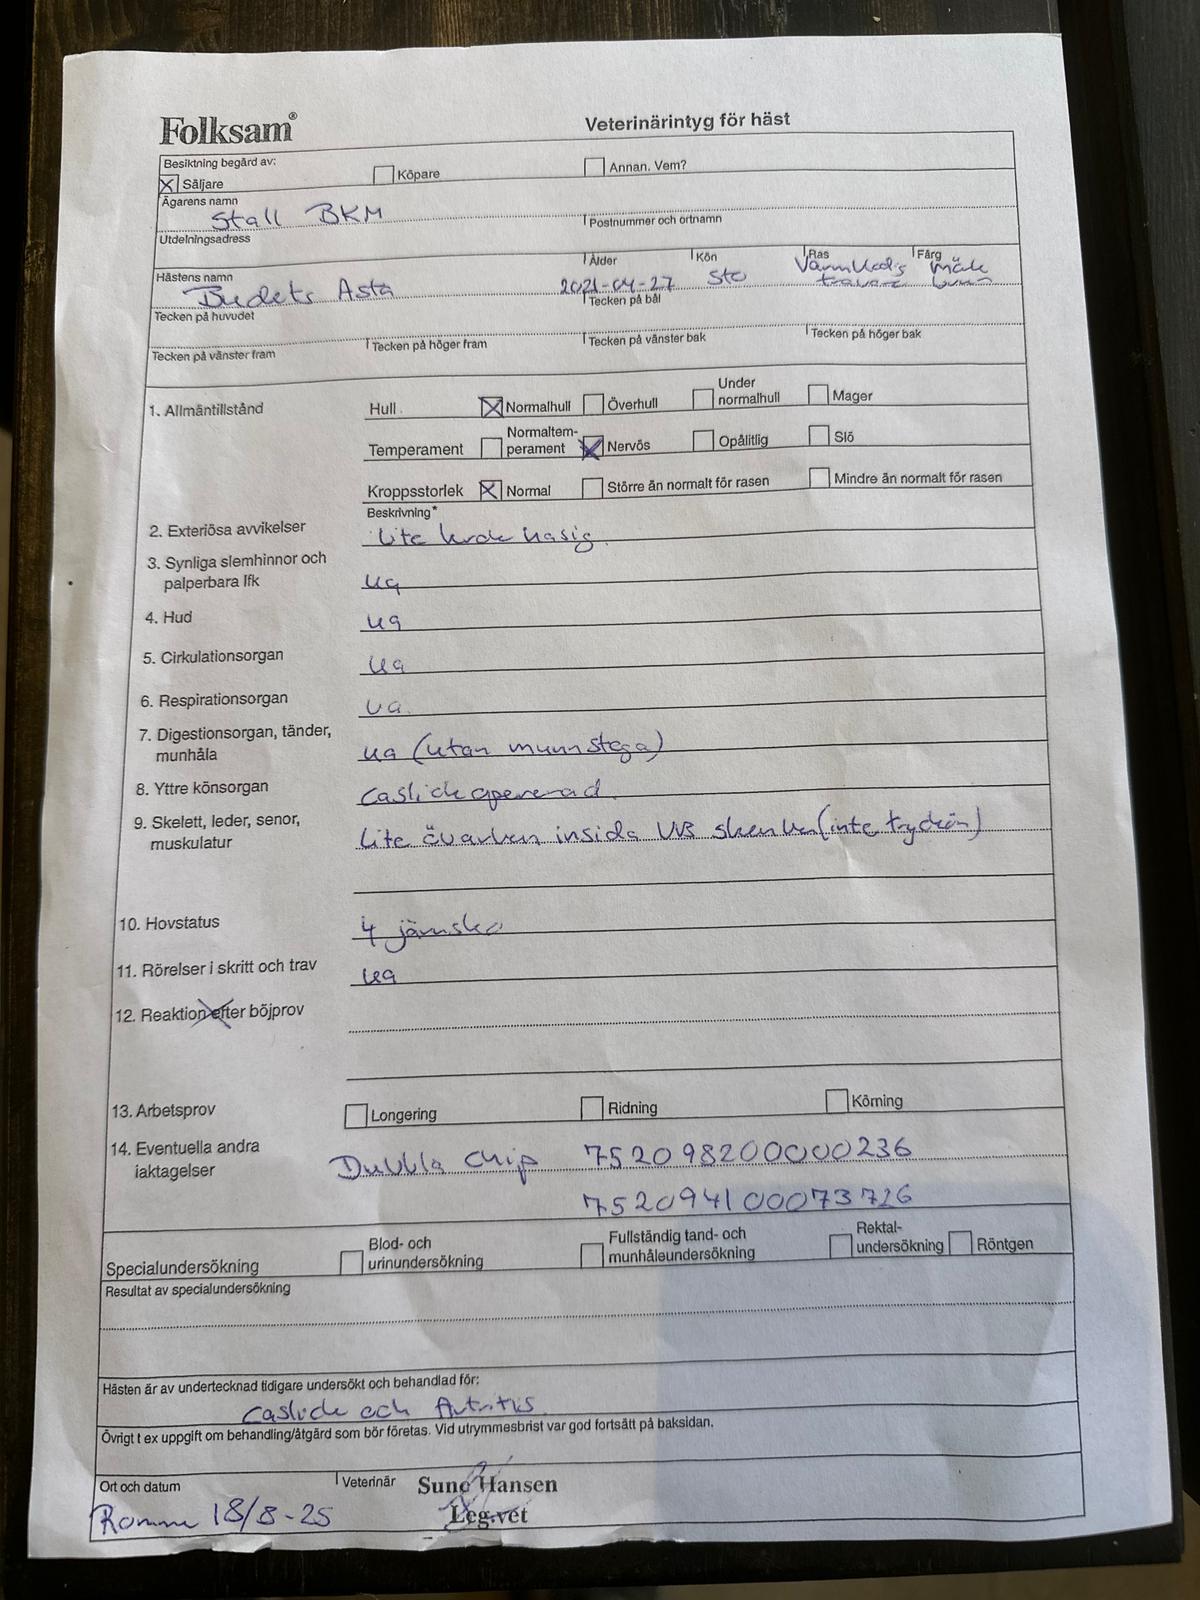 Folksam®
Veterinärintyg för häst
Besiktning begärd av:
Säljare
Köpare
Annan. Vem?
Ägarens namn
Stall BKM
Utdelningsadress
Postnummer och ortnamn
Hästens namn
Ålder
Kön
Ras
Färg
Budets Asta
2021-04-27
Sto
Varmblodig
travare
mörk
brun
Tecken på huvudet
Tecken på bål
Tecken på vänster fram
Tecken på höger fram
Tecken på vänster bak
Tecken på höger bak
1. Allmäntillstånd
Hull
Normalhull
Överhull
Under
normalhull
Mager
Temperament
Normaltem-
perament
Nervös
Opålitlig
Slö
Kroppsstorlek
Normal
Större än normalt för rasen
Mindre än normalt för rasen
Beskrivning*
2. Exteriösa avvikelser
Lite krok hasig.
3. Synliga slemhinnor och
palperbara lfk
ua
4. Hud
ua
5. Cirkulationsorgan
ua
6. Respirationsorgan
ua.
7. Digestionsorgan, tänder,
munhåla
ua (utan munstega)
8. Yttre könsorgan
caslickopererad
9. Skelett, leder, senor,
muskulatur
Lite insida VB (inte tryck
10. Hovstatus
4 järnsko
11. Rörelser i skritt och trav
ua
12. Reaktion efter böjprov
13. Arbetsprov
Longering
Ridning
Körning
14. Eventuella andra
iaktagelser
Dubbla chip 752098200000236
752094100073726
Specialundersökning
Blod- och
urinundersökning
Fullständig tand- och
munhåleundersökning
Rektal-
undersökning
Röntgen
Resultat av specialundersökning
Hästen är av undertecknad tidigare undersökt och behandlad för:
Caslick och Artritis
Övrigt t ex uppgift om behandling/åtgärd som bör företas. Vid utrymmesbrist var god fortsätt på baksidan.
Ort och datum
Veterinär
Sune Hansen
Leg.vet
Romme 18/8-25